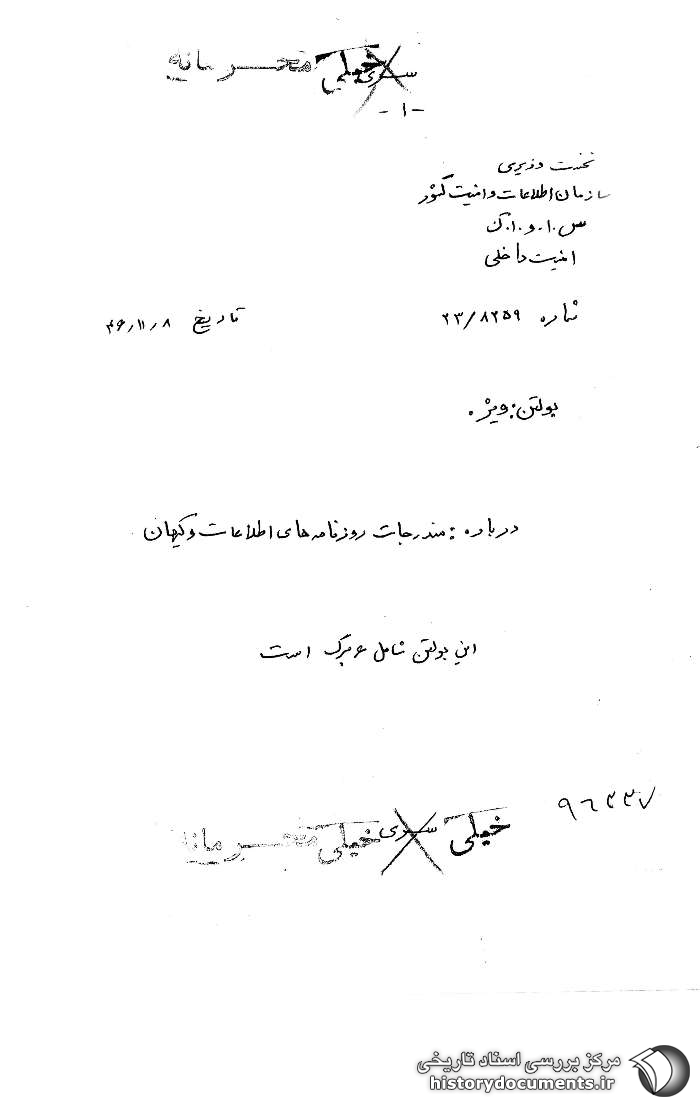 خیلی محرمانه
سری
-۱-
نخست وزیری
سازمان اطلاعات و امنیت کشور
س.ا.و.ا.ک
امنیت داخلی
شماره ۲۳/۸۲۵۹ تاریخ ۴۶/۱۱/۸
بولتن: ویژه
درباره: مندرجات روزنامه های اطلاعات و کیهان
این بولتن شامل ۶ برگ است
خیلی سری خیلی محرمانه
مرکز بررسی اسناد تاریخی
historydocuments.ir